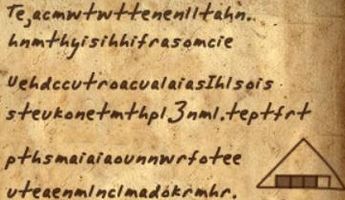 Te,acmwtwttenenlltahn.
hnmthyisihhifrasomcie
uehdccutroacualaiasIhlsois
steukonetmthpl3nml.teptfrt
pthsmaiaiaounnwrfotee
uteaenmlnclmadokrmhr.